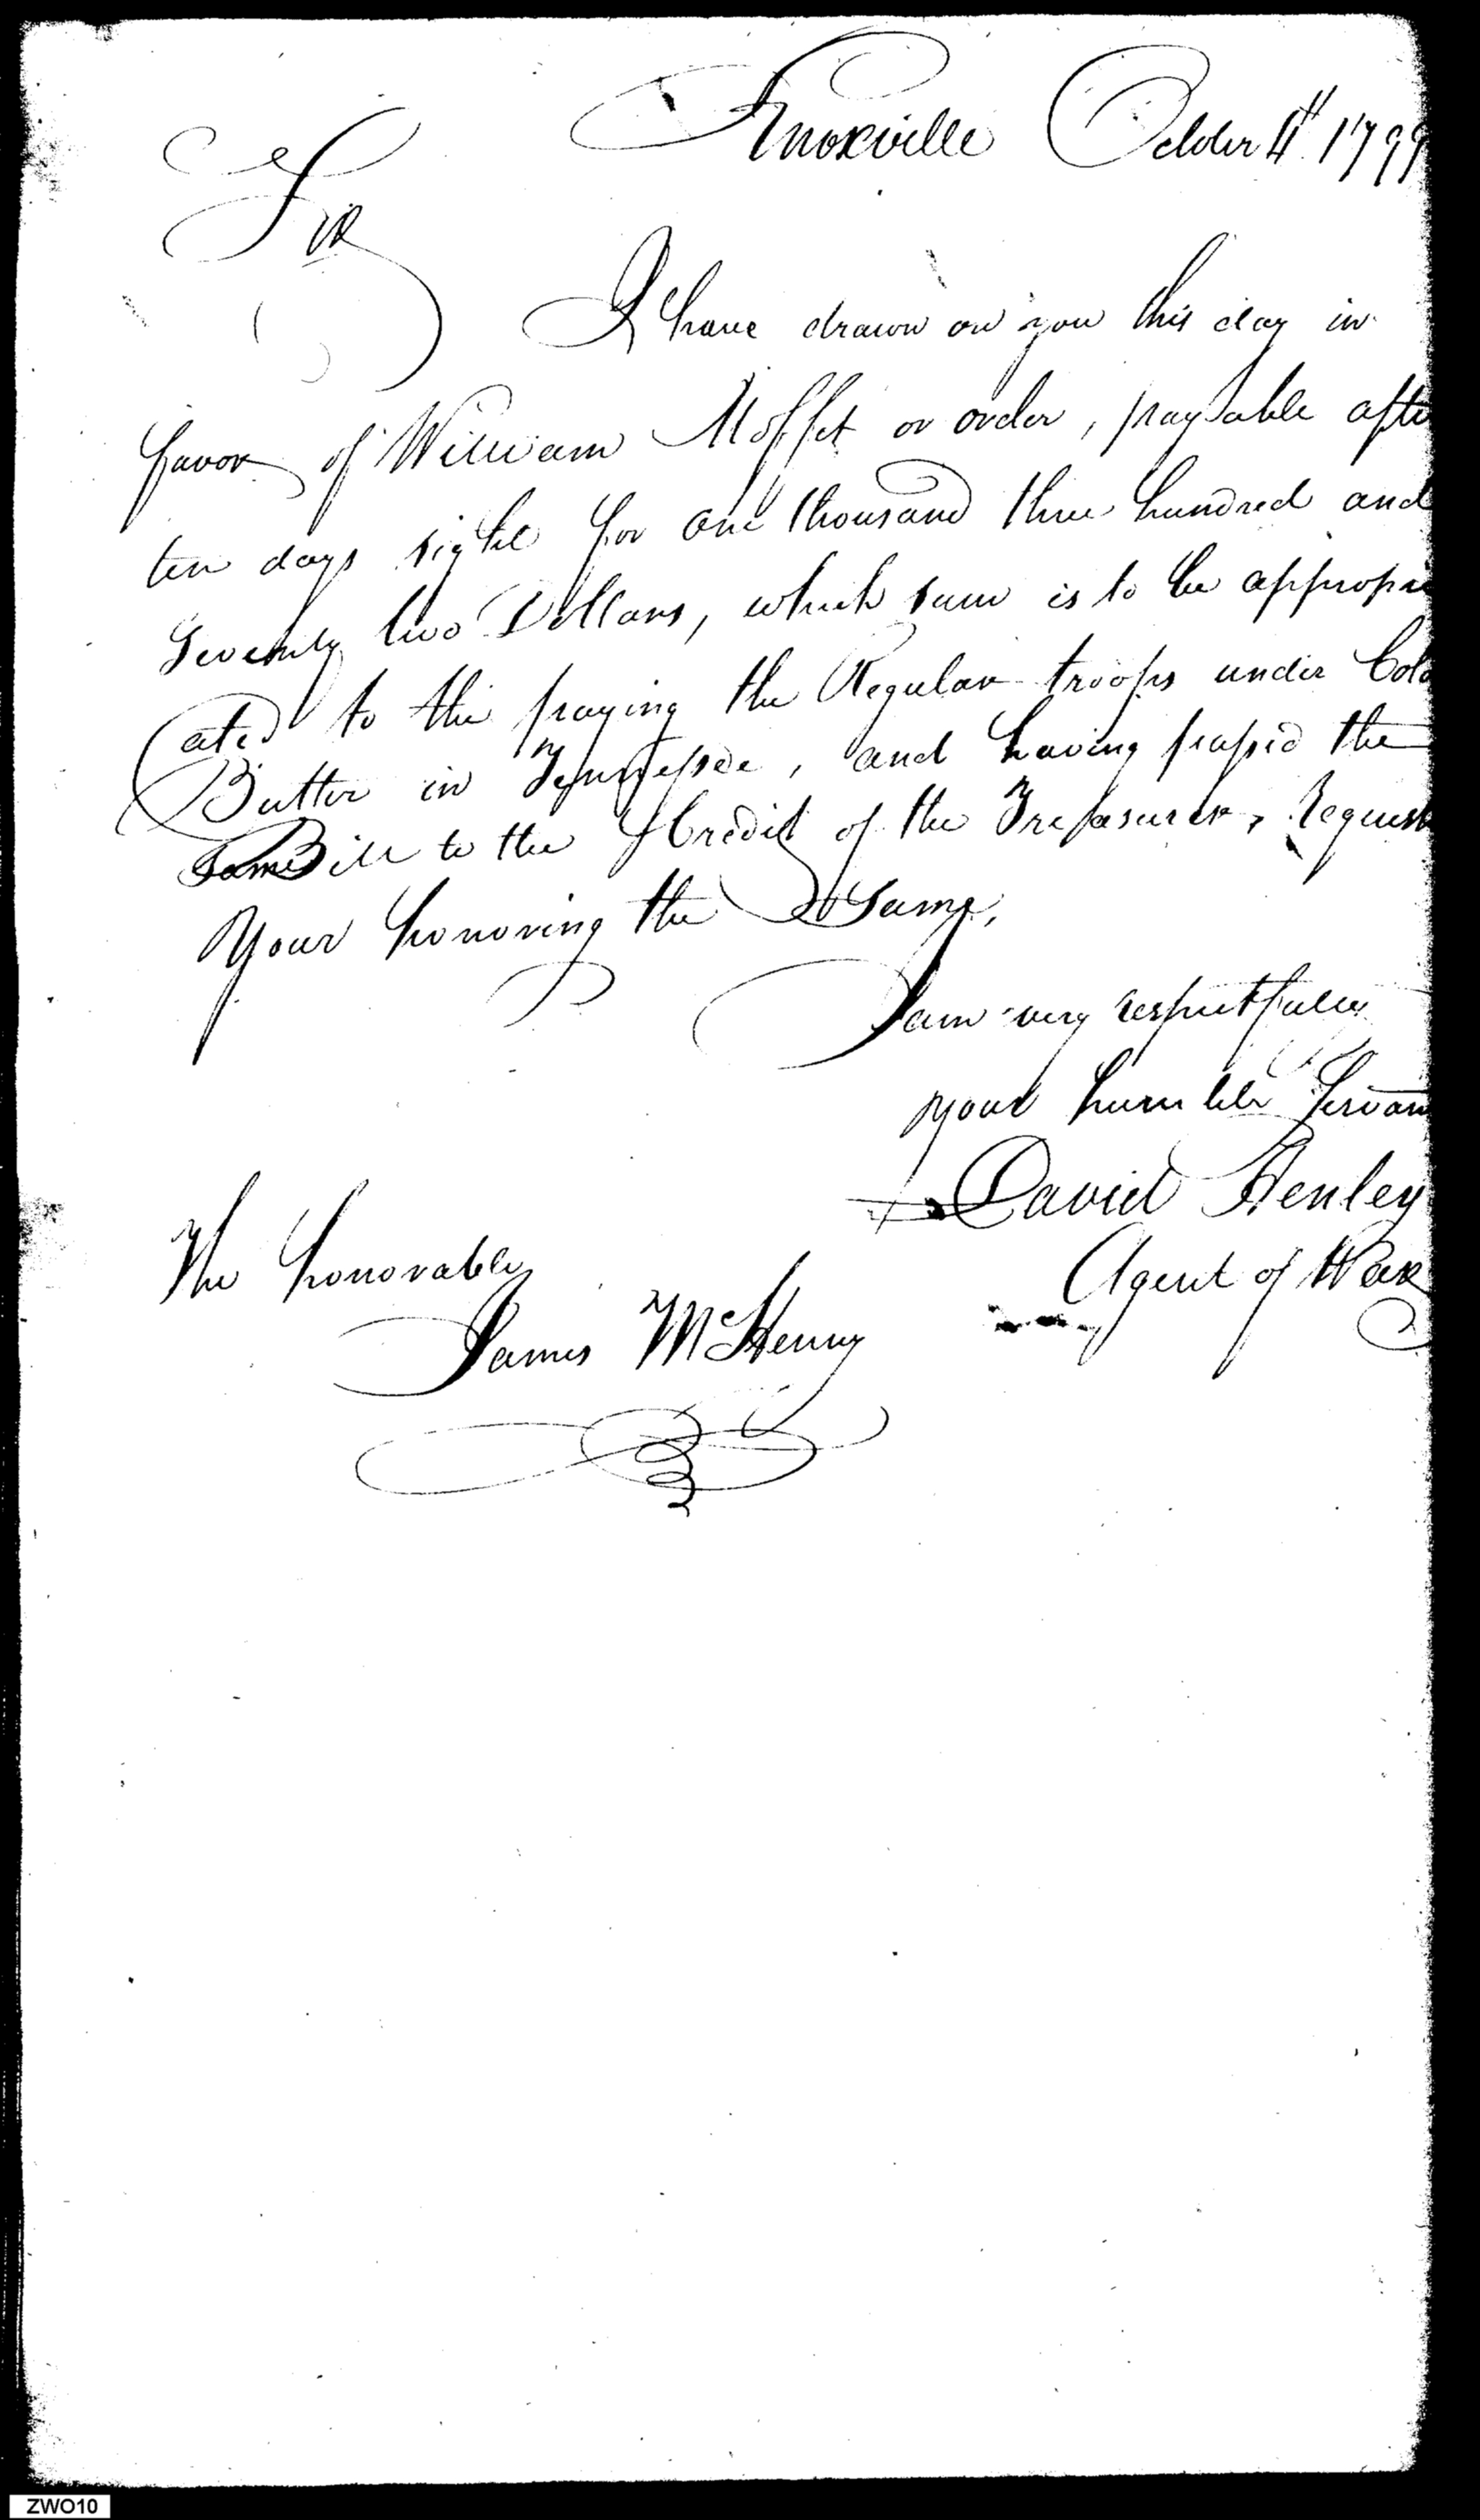 Knoxville October 4th 1799
Sir
I have drawn on you this day in
favor of William Moffet or order, payable afte
ten days sight for one thousand three hundred and
Seventy two Dollars, which sum is to be appropri
ated to the paying the Regular troops under Colo
Butler in Tennessee, and having passed the
Same Bill to the Credit of the Treasurer, Request
Your honoring the Same,
I am very respectfully
your humble Servan
David Henley
Agent of War
The honorable
James McHenry
ZWO10